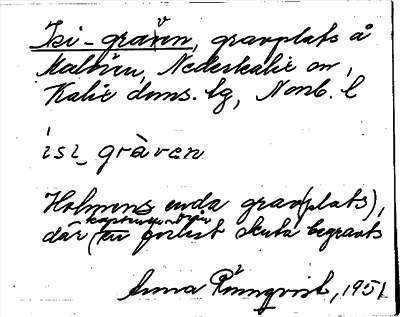 Isi-gräven, gravplats å
Malören, Nederkalix sn,
Kalix doms. lg, Norrb. l
isi_gràven
Holmens enda grav(plats),
där (en förlist skuta begravts
Anna Rönnqvist, 1951